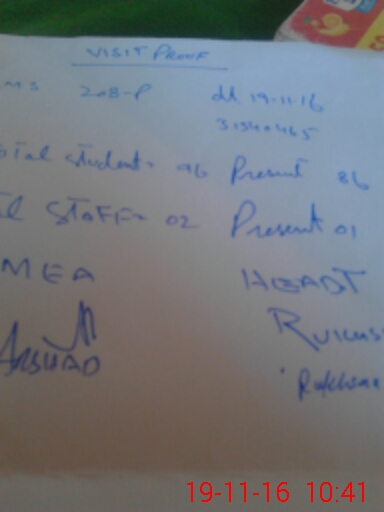 VISIT PROOF
MS 208-P dt 19-11-16
31340465
otal Students 96 Present 86
l STAFF- 02 Present 01
MEA HEADT
ARSHAD
19-11-16 10:41